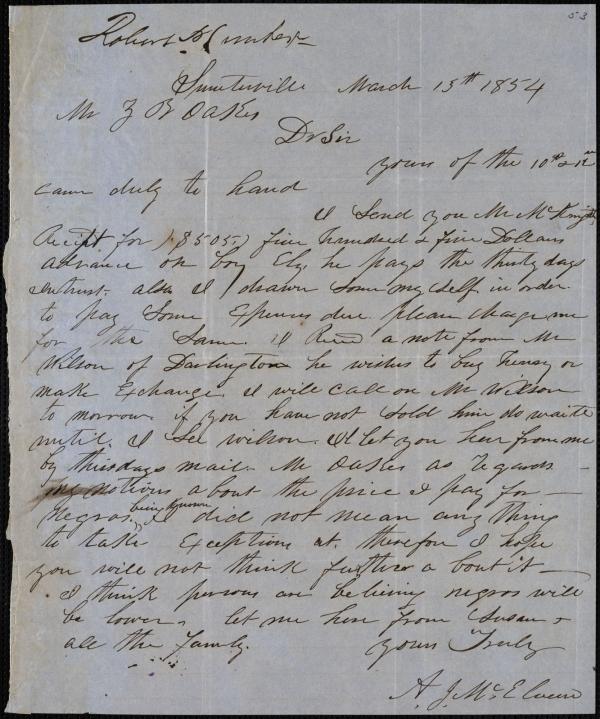 53
Robert
Sumterville March 15th 1854
Mr Z B Oakes
Dr Sir
yours of the 10th & 12th
came duly to hand
I Send you Mr McKnights
Recipt for $505 five hundred & five Dollars
advance on boy Ely. he pays the thirty days
Intrust. also I drawn some myself in order
to pay Some Expences due. please charge me
for the Same. I Recd a note from Mr
Wilson of Darlington he wishes to buy Henry or
make Exchange. I will call on Mr Wilson
to morrow. if you have not Sold him do waite
until I See wilson. Il let you hear from me
by thursdays mail. Mr Oakes as regards
notions a bout the price I pay for
negros being known I did not mean any thing
to take Exceptions at. therefore I hope
you will not think further a bout it
I think persons are beliving negros will
be lower. let me hear from Susan &
all the Family.
yours Truly
A. J. McElveen